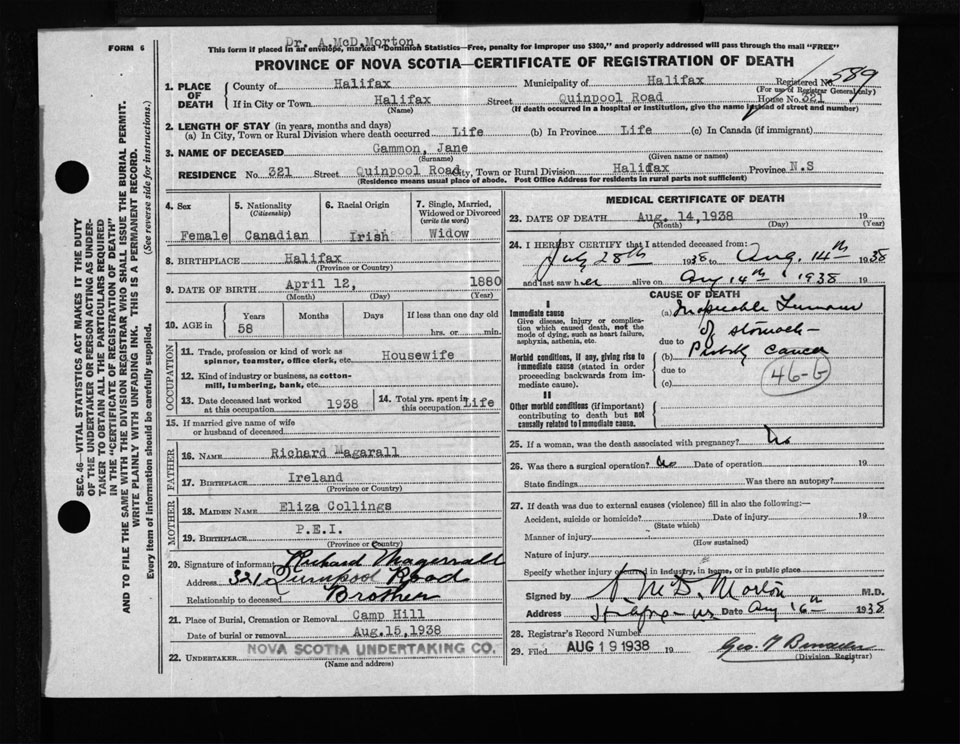 Dr. A. McD. Morton
FORM 6
This form if placed in an envelope, marked "Dominion Statistics—Free, penalty for improper use $300," and properly addressed will pass through the mail "FREE"
PROVINCE OF NOVA SCOTIA—CERTIFICATE OF REGISTRATION OF DEATH
1. PLACE OF DEATH
County of Halifax Municipality of Halifax Registered No. 589
(For use of Registrar General only)
If in City or Town Halifax Street Quinpool Road House No. 321
(Name) (If death occurred in a hospital or institution, give the name instead of street and number)
2. LENGTH OF STAY (in years, months and days)
(a) In City, Town or Rural Division where death occurred Life (b) In Province Life (c) In Canada (if immigrant)
3. NAME OF DECEASED Gammon, Jane
(Surname) (Given name or names)
RESIDENCE No. 321 Street Quinpool Road City, Town or Rural Division Halifax Province N.S
(Residence means usual place of abode. Post Office Address for residents in rural parts not sufficient)
4. Sex Female
5. Nationality (Citizenship) Canadian
6. Racial Origin Irish
7. Single, Married, Widowed or Divorced (write the word) Widow
8. BIRTHPLACE Halifax
(Province or Country)
9. DATE OF BIRTH April 12, 1880
(Month) (Day) (Year)
10. AGE in Years 58 Months Days If less than one day old hrs. or min.
OCCUPATION
11. Trade, profession or kind of work as spinner, teamster, office clerk, etc. Housewife
12. Kind of industry or business, as cotton-mill, lumbering, bank, etc.
13. Date deceased last worked at this occupation 1938
14. Total yrs. spent in this occupation Life
15. If married give name of wife or husband of deceased
FATHER
16. NAME Richard Magarall
17. BIRTHPLACE Ireland
(Province or Country)
MOTHER
18. MAIDEN NAME Eliza Collings
19. BIRTHPLACE P.E.I.
(Province or Country)
20. Signature of informant Richard Magarrall
Address 321 Quinpool Road
Relationship to deceased Brother
21. Place of Burial, Cremation or Removal Camp Hill
Date of burial or removal Aug.15,1938
22. UNDERTAKER NOVA SCOTIA UNDERTAKING CO.
(Name and address)
MEDICAL CERTIFICATE OF DEATH
23. DATE OF DEATH Aug. 14,1938 19
(Month) (Day)
24. I HEREBY CERTIFY that I attended deceased from:
July 28th 1938 to Aug. 14th 1938
and last saw her alive on Aug 14th 1938
CAUSE OF DEATH
I
Immediate cause
Give disease, injury or complication which caused death, not the mode of dying, such as heart failure, asphyxia, asthenia, etc.
(a) Inoperable Tumour
of stomach—
due to
Probably cancer
Morbid conditions, if any, giving rise to immediate cause (stated in order proceeding backwards from immediate cause).
due to
46-b
(c)
II
Other morbid conditions (if important) contributing to death but not causally related to immediate cause.
25. If a woman, was the death associated with pregnancy? No
26. Was there a surgical operation? No Date of operation 19
State findings Was there an autopsy?
27. If death was due to external causes (violence) fill in also the following:—
Accident, suicide or homicide? Date of injury 19
(State which)
Manner of injury
(How sustained)
Nature of injury
Specify whether injury occurred in industry, in home, or in public place
Signed by A. McD. Morton M.D.
Address Halifax NS Date Aug 16th 1938
28. Registrar's Record Number
29. Filed AUG 19 1938 19
(Division Registrar)
SEC. 46—VITAL STATISTICS ACT MAKES IT THE DUTY
OF THE UNDERTAKER OR PERSON ACTING AS UNDER-
TAKER TO OBTAIN ALL THE PARTICULARS REQUIRED
IN THE "CERTIFICATE OF REGISTRATION OF DEATH"
AND TO FILE THE SAME WITH THE DIVISION REGISTRAR WHO SHALL ISSUE THE BURIAL PERMIT.
WRITE PLAINLY WITH UNFADING INK. THIS IS A PERMANENT RECORD.
Every item of information should be carefully supplied. (See reverse side for instructions.)